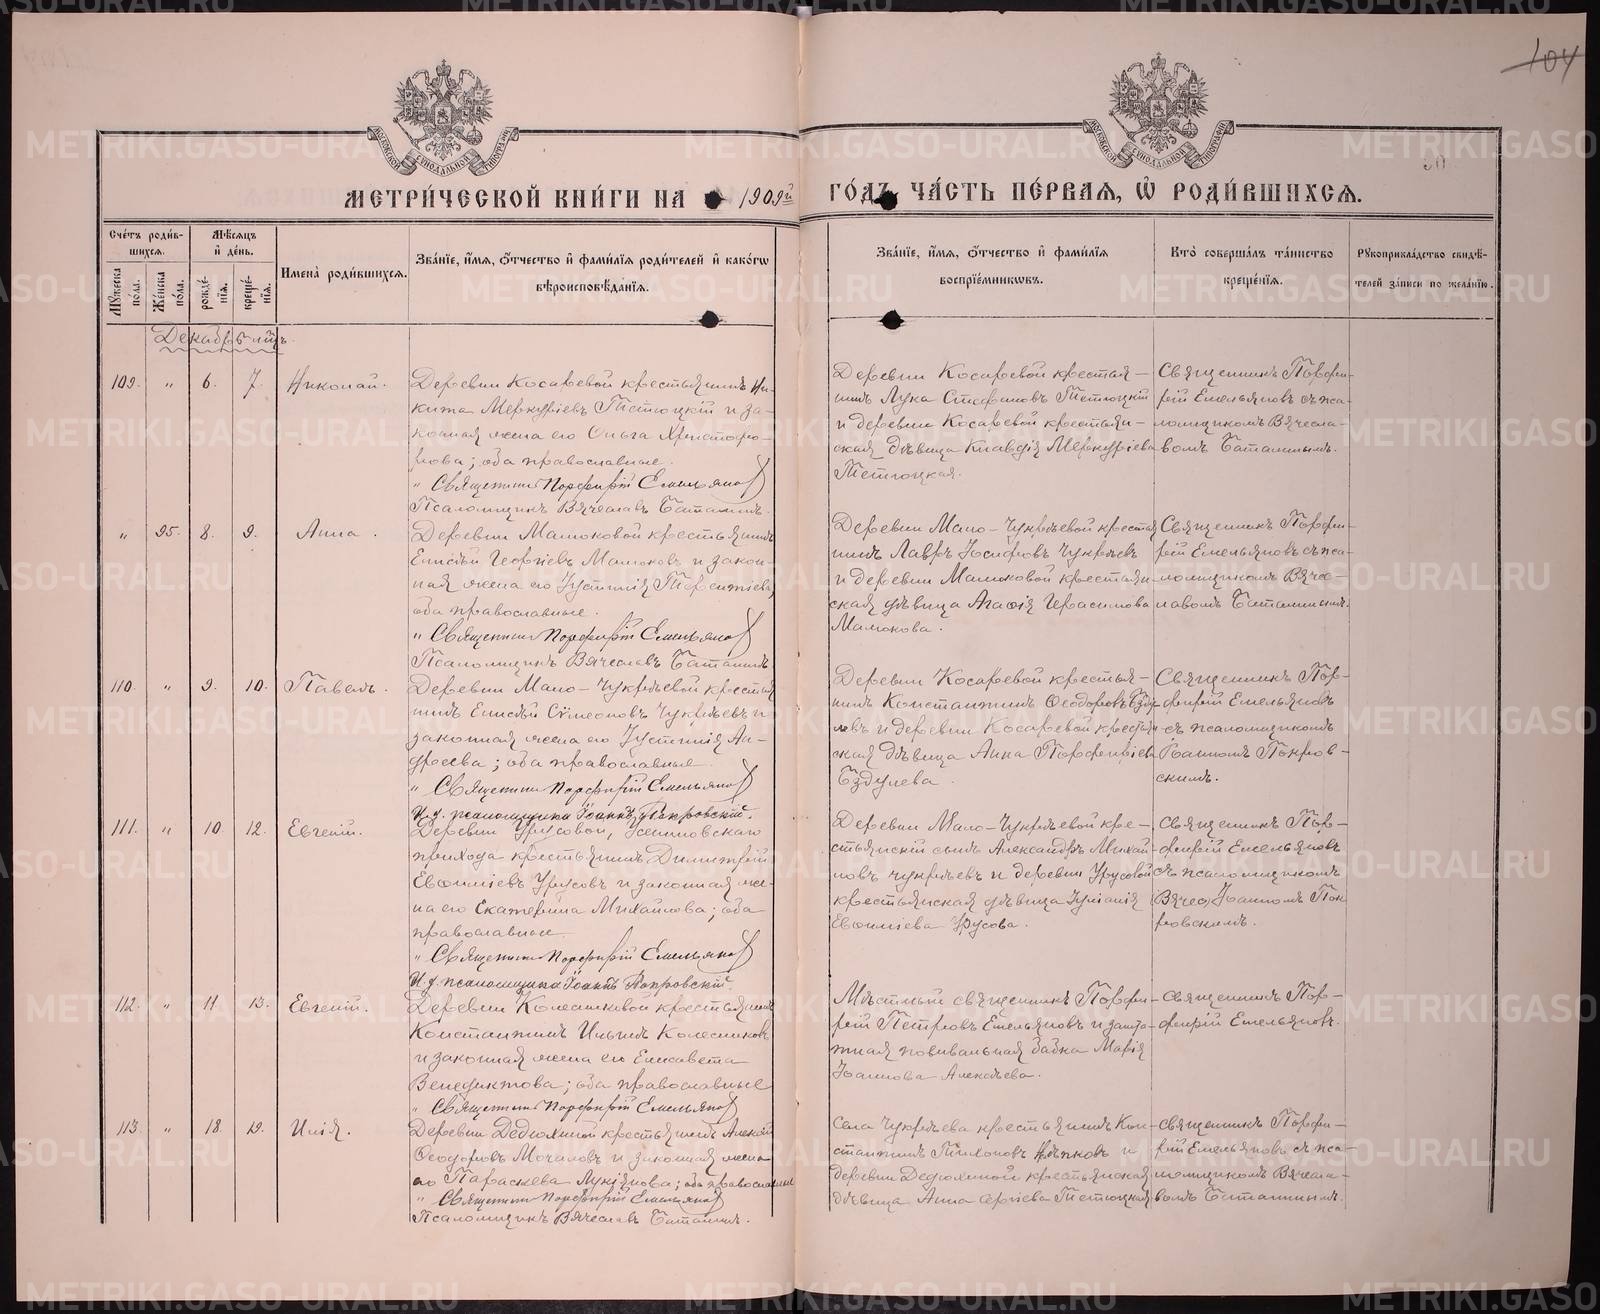 104
50
МОСКОВСКОЙ СѴНОДАЛЬНОЙ ТИПОГРАФІИ
МОСКОВСКОЙ СѴНОДАЛЬНОЙ ТИПОГРАФІИ
МЕТРИ́ЧЕСКОЙ КНИ́ГИ НА 1909й ГО́ДЪ ЧА́СТЬ ПЕ́РВАЯ, Ѡ҆ РОДИ́ВШИХСЯ.
Сче́тъ роди́в-
шихся.
Му́жеска по́ла.
Же́нска по́ла.
Мѣ́сяцъ и҆ де́нь.
рожде́-
нїя.
креще́-
нїя.
И҆мена̀ роди́вшихся.
Зва́нїе, и҆́мя, ѻ҆́тчество и҆ фами́лїя роди́телей и҆ како́гѡ
вѣроисповѣ́данїя.
Зва́нїе, и҆́мя, ѻ҆́тчество и҆ фами́лїя
воспрїе́мникѡвъ.
Кто̀ соверша́лъ та́инство
креще́нїя.
Рꙋкоприкла́дство свидѣ́-
телей за́писи по жела́нїю.
Декабрь мцъ.
109. " 6. 7. Николай.
Деревни Косаревой крестьянинъ Ни-
кита Меркуріевъ Тетюцкій и за-
конная жена его Ольга Христофо-
рова; оба православные.
" Священникъ Порфирій Емельяновъ
Псаломщикъ Вячеславъ Баталинъ.
Деревни Косаревой крестья-
нинъ Лука Стефановъ Тетюцкій
и деревни Косаревой крестьян-
ская дѣвица Клавдія Меркуріева
Тетюцкая.
Священникъ Порфи-
рій Емельяновъ съ пса-
ломщикомъ Вячесла-
вомъ Баталинымъ.
" 95. 8. 9. Анна.
Деревни Мамоковой крестьянинъ
Елисѣй Георгіевъ Мамоковъ и закон-
ная жена его Іустинія Терентіева,
оба православные.
" Священникъ Порфирій Емельяновъ
Псаломщикъ Вячеславъ Баталинъ
Деревни Мало-Чукрѣевой крестья
нинъ Лавръ Іосифовъ Чукрѣевъ
и деревни Мамоковой крестьян-
ская дѣвица Агафія Герасимова
Мамокова.
Священникъ Порфи-
рій Емельяновъ съ пса-
ломщикомъ Вяче-
славомъ Баталинымъ.
110. " 9. 10. Павелъ.
Деревни Мало-Чукрѣевой крестья
нинъ Елисѣй Сѵмеоновъ Чукрѣевъ и
законная жена его Іустинія Ан-
дреева; оба православные.
" Священникъ Порфирій Емельяновъ
И. д. псаломщика Іоаннъ Покровскій.
Деревни Косаревой крестья-
нинъ Константинъ Ѳеодоровъ Езду
левъ и деревни Косаревой крестьян-
ская дѣвица Анна Порфиріева
Ездулева.
Священникъ Пор-
фирій Емельяновъ
съ псаломщикомъ
Іоанномъ Покров-
скимъ.
111. " 10. 12. Евгеній.
Деревни Урусовой, прихода крестьянинъ Димитрій
Евѳиміевъ Урусовъ и законная же-
на его Екатерина Михаилова; оба
православные.
" Священникъ Порфирій Емельяновъ
И. д. псаломщика Іоаннъ Покровскій.
Деревни Мало-Чукрѣевой кре-
стьянскій сынъ Александръ Михаи
ловъ Чукрѣевъ и деревни Урусовой
крестьянская дѣвица
Евѳиміева Урусова.
Священникъ Пор-
фирій Емельяновъ
съ псаломщикомъ
Іоанномъ Пок
ровскимъ.
112. " 11. 13. Евгеній.
Деревни Колесниковой крестьянинъ
Константинъ Ильинъ Колесниковъ
и законная жена его Елисавета
Венедиктова; оба православные
" Священникъ Порфирій Емельяновъ
Мѣстный священникъ Порфи-
рій Петровъ Емельяновъ и
повивальная бабка Марія
Іоаннова Алексѣева.
Священникъ Пор-
фирій Емельяновъ.
113. " 18. 19. Илія.
Деревни Дедюхиной крестьянинъ Алексій
Ѳеодоровъ Мочаловъ и законная жена
его Параскева Лукіянова; оба православные
" Священникъ Порфирій Емельяновъ
Псаломщикъ Вячеславъ Баталинъ.
Села Чукрѣева крестьянинъ Кон-
стантинъ Тихоновъ и
деревни Дедюхиной крестьянская
дѣвица Анна Сергіева Тетюцкая
Священникъ Порфи-
рій Емельяновъ съ пса-
ломщикомъ Вячесла-
вомъ Баталинымъ.
METRIKI.GASO-URAL.RU